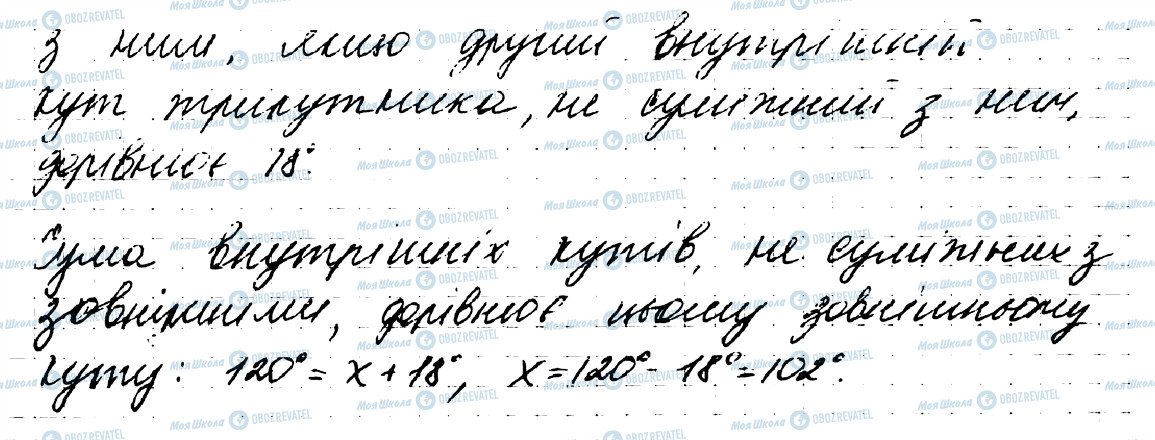 з ним, якщо другий внутрішній
кут трикутника, не суміжний з ним,
дорівнює 18°.
Сума внутрішніх кутів, не суміжних з
зовнішніми, дорівнює цьому зовнішньому
куту: 120° = x + 18°, x = 120° - 18° = 102°.
МояШкола OBOZREVATEL